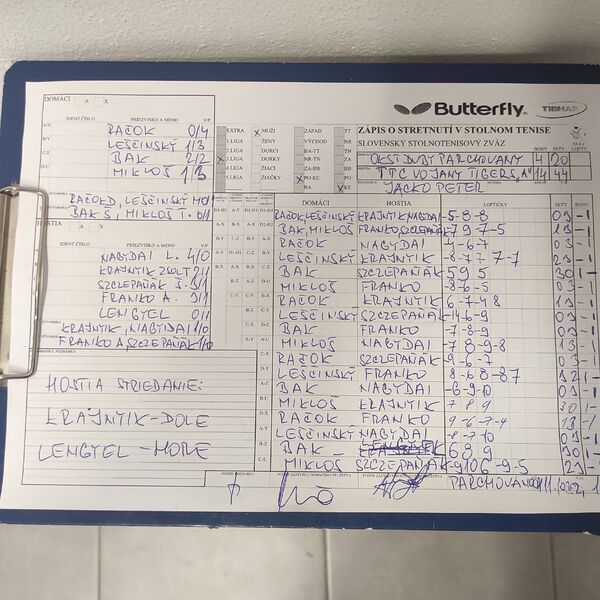 DOMÁCI A X
Butterfly TIBHAR
IDENT. ČÍSLO PRIEZVISKO A MENO V/P
ZÁPIS O STRETNUTÍ V STOLNOM TENISE
SLOVENSKÝ STOLNOTENISOVÝ ZVÄZ
RAČOK 0/4
LEŠČINSKÝ 1/3
BAK 2/2
MIKLOŠ 1/3
EXTRA X MUŽI ZÁPAD TT
1.LIGA ŽENY VÝCHOD NR
2.LIGA DORCI BA-TT TN
X 3.LIGA DORKY NR-TN ZA
4.LIGA ŽIACI ZA-BB BB
5.LIGA ŽIAČKY X PO-KE PO
BA X KE
BODY SETY
OKST DVBJ PARCHOVANY 4 20
TTC VOJANY TIGERS "A" 14 44
JACKO PETER
RAČOK D, LEŠČINSKÝ M 0/1
BAK S, MIKLOŠ T. 0/1
DOMÁCI HOSTIA LOPTIČKY SETY BODY
HOSTIA A X
IDENT. ČÍSLO PRIEZVISKO A MENO V/P
NAGYDAI L. 4/0
KRAJNYIK ZSOLT 2/1
SZCZEPAŇÁK J. 3/1
FRANKO A. 3/1
LENGYEL 0/1
KRAJNYIK, NAGYDAI 1/0
FRANKO A, SZCZEPAŇÁK 1/0
RAČOK, LEŠČINSKÝ KRAJNYIK, NAGYDAI -5 -8 -8 03 -1
BAK, MIKLOŠ FRANKO, SZCZEPAŇÁK -7 9 -7 -5 13 -1
RAČOK NAGYDAI -4 -6 -7 03 -1
LEŠČINSKÝ KRAJNYIK -8 -7 7 7 -7 23 -1
BAK SZCZEPAŇÁK 5 9 5 30 1 -
MIKLOŠ FRANKO -8 -6 -5 03 -1
RAČOK KRAJNYIK 6 -7 -4 8 13 -1
LEŠČINSKÝ SZCZEPAŇÁK -14 -6 -9 03 -1
BAK FRANKO -7 -8 -9 03 -1
MIKLOŠ NAGYDAI -7 8 -9 -8 13 -1
RAČOK SZCZEPAŇÁK -9 -6 -7 03 -1
LEŠČINSKÝ FRANKO 8 -6 8 -8 7 32 1 -
BAK NAGYDAI -6 -9 -10 03 -1
MIKLOŠ KRAJNYIK 7 8 9 30 1 -
RAČOK FRANKO 9 -6 -7 -4 13 -1
LEŠČINSKÝ NAGYDAI -8 -7 -10 03 -1
BAK LENGYEL 6 8 9 30 1 -
MIKLOŠ SZCZEPAŇÁK -9 10 6 -9 -5 23 -1
HOSTIA STRIEDANIE:
KRAJNYIK - DOLE
LENGYEL - HORE
PARCHOVANY